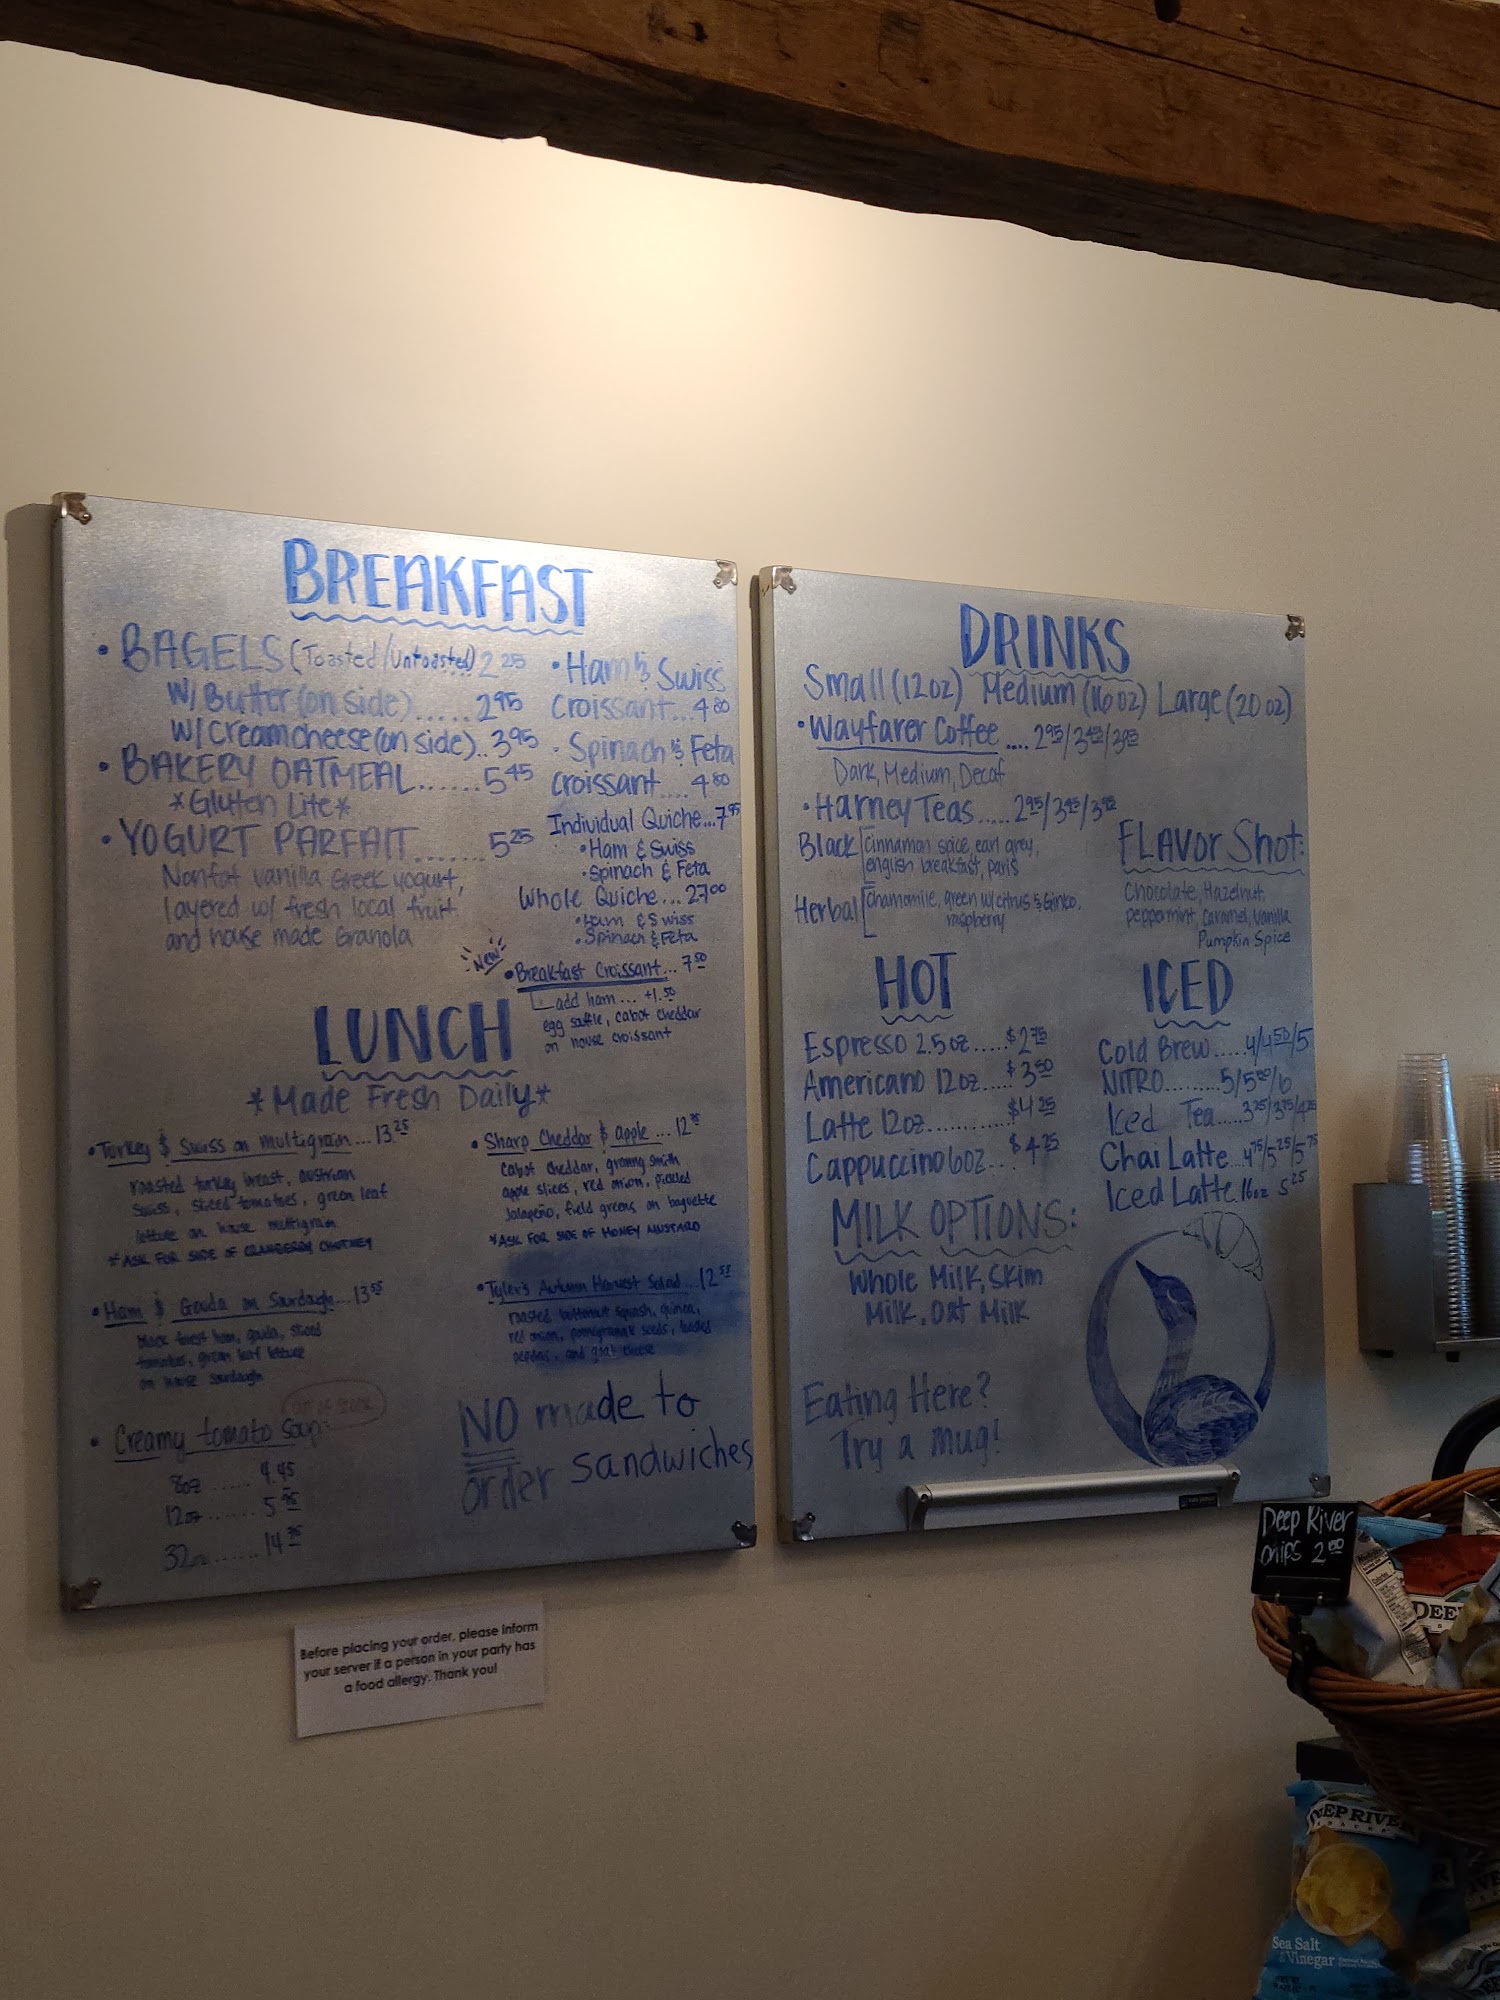 BREAKFAST
• BAGELS (Toasted/Untoasted) 2.25
W/ Butter (on side)......2.95
W/ Creamcheese (on side)..3.95
• BAKERY OATMEAL......5.45
*Gluten Lite*
• YOGURT PARFAIT.......5.25
Nonfat vanilla Greek yogurt,
layered w/ fresh local fruit
and house made Granola
• Ham & Swiss
Croissant...4.80
• Spinach & Feta
Croissant....4.80
Individual Quiche...7.95
• Ham & Swiss
• Spinach & Feta
Whole Quiche...27.00
• Ham & Swiss
• Spinach & Feta
New
• Breakfast Croissant...7.50
add ham....+1.50
egg soffle, cabot cheddar
on house croissant
LUNCH
*Made Fresh Daily*
• Turkey & Swiss on multigrain...13.25
roasted turkey breast, austrian
Swiss, sliced tomatoes, green leaf
lettuce on house multigrain
*ASK FOR SIDE OF CRANBERRY CHUTNEY
• Ham & Gouda on Sourdough...13.55
black forest ham, gouda, sliced
tomatoes, green leaf lettuce
on house sourdough
out of stock
• Creamy tomato soup:
8oz ...... 4.45
12oz ....... 5
32oz ....... 14
• Sharp Cheddar & apple ...12
Cabot cheddar, granny smith
apple slices, red onion, pickled
Jalapeño, field greens on baguette
*ASK FOR SIDE OF HONEY MUSTARD
• Tyler's Autumn Harvest Salad...12.55
roasted butternut squash, quinoa,
red onion, pomegranate seeds,
pepitas, and goat cheese
NO made to
order sandwiches
Before placing your order, please inform
your server if a person in your party has
a food allergy. Thank you!
DRINKS
Small (12oz) Medium (16oz) Large (20oz)
• Wayfarer Coffee ....2.95/3.45/3.95
Dark, Medium, Decaf
• Harney Teas......2.95/3.45/3.95
Black [cinnamon spice, earl grey,
english breakfast, paris
Herbal [Chamomile, green w/ citrus & Ginko,
raspberry
FLAVOR Shot:
Chocolate, Hazelnut,
peppermint, Caramel, Vanilla
Pumpkin Spice
HOT
Espresso 2.5oz.....$2.75
Americano 12oz....$3.50
Latte 12oz............$4.25
Cappuccino 6oz...$4.25
ICED
Cold Brew.....4/4.50/5
NITRO.........5/5.50/6
Iced Tea....3.25/3.75/4.25
Chai Latte...4.75/5.25/5.75
Iced Latte 16oz 5.25
MILK OPTIONS:
Whole Milk, Skim
Milk, Oat Milk
Eating Here?
Try a mug!
Deep River
chips 2.00
DEEP
DEEP RIVER
SNACKS
Sea Salt
& Vinegar